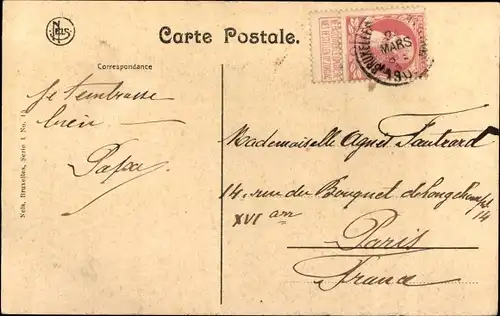 NELS
Carte Postale.
BRUXELLES
MARS
Correspondance
Je t'embrasse
bien
Papa
Mademoiselle Agnès
14, rue du Bouquet de Longchamp
14
XVI em
Paris
France
Nels, Bruxelles, Serie 1 No. 1